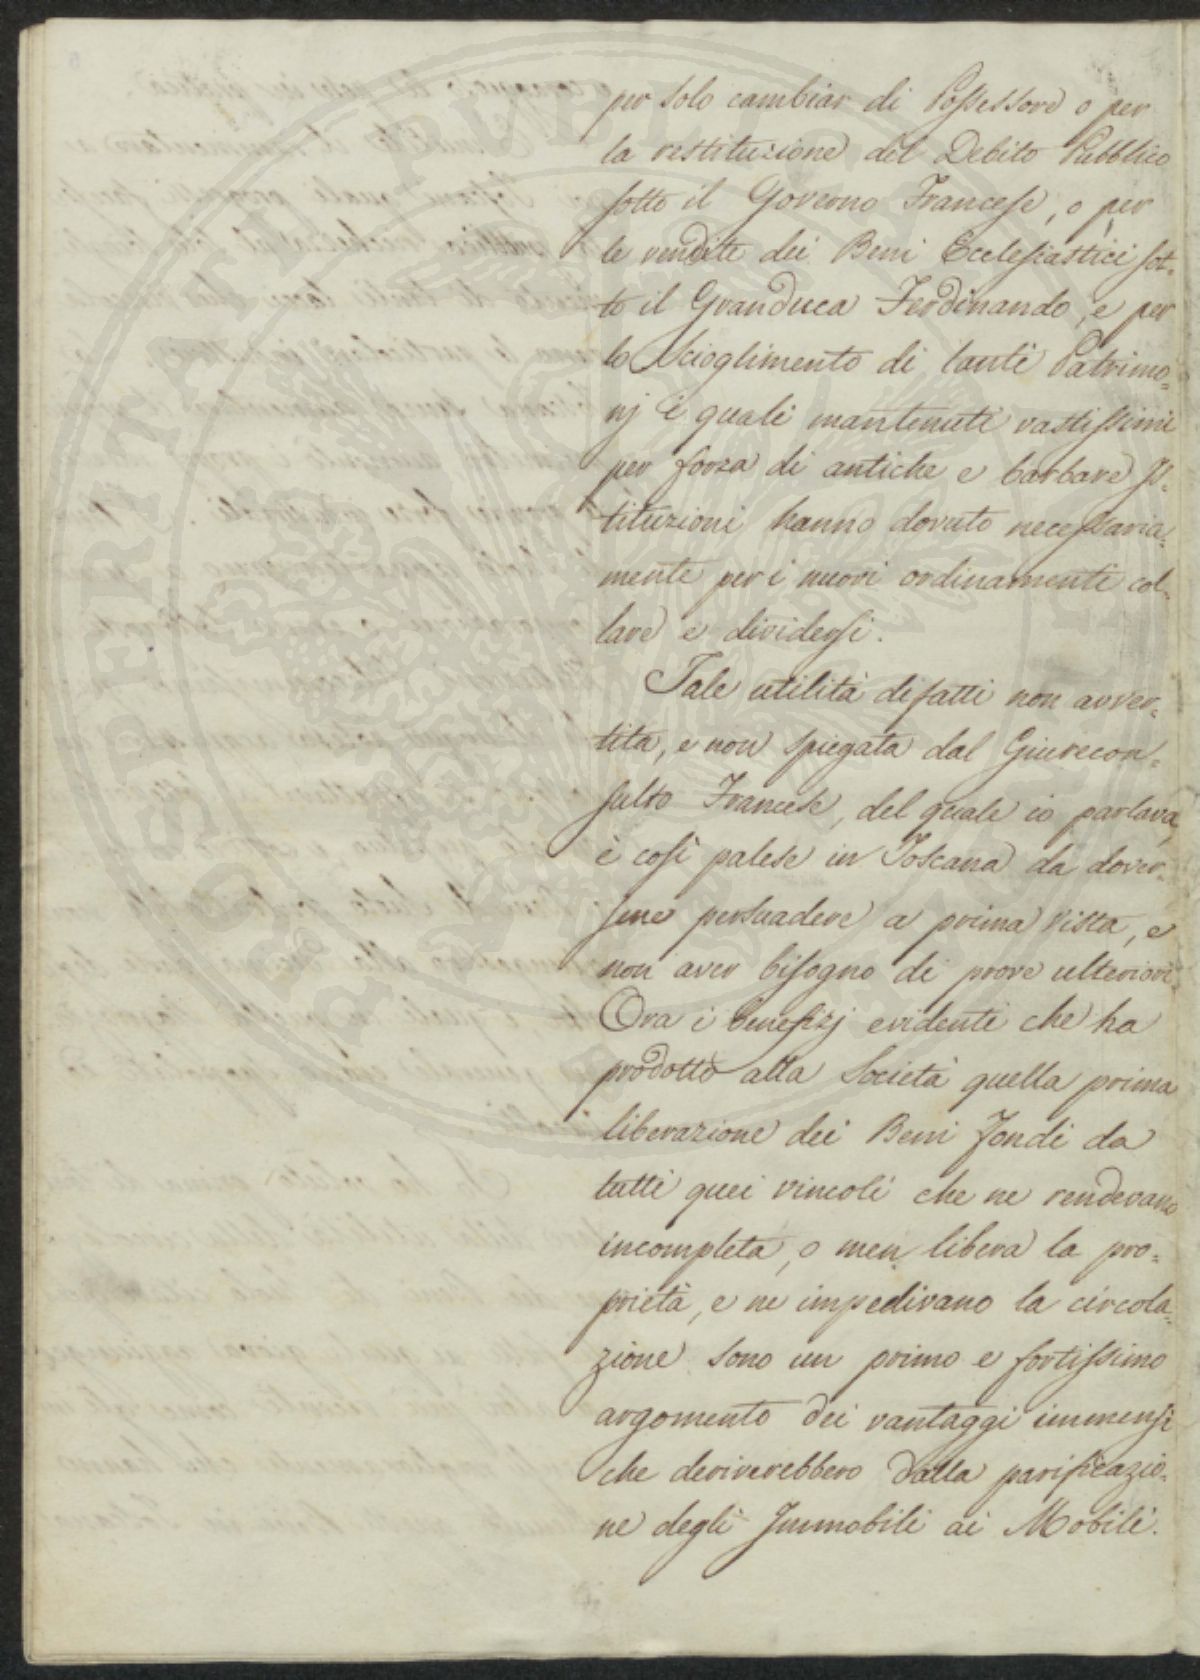 per solo cambiar di Possessore o per
la restituzione del Debito Pubblico
sotto il Governo Francese, o per
le vendite dei Beni Ecclesiastici sot-
to il Granduca Ferdinando, e per
lo Scioglimento di tanti Patrimo=
nj i quali mantenuti vastissimi
per forza di antiche e barbare Is-
tituzioni hanno dovuto necessaria=
mente per i nuovi ordinamenti col-
lare e dividersi.
Tale utilità difatti non avver-
tita, e non spiegata dal Giurecon-
sulto Francese, del quale io parlava,
è così palese in Toscana da dover-
sene persuadere a prima vista, e
non aver bisogno di prove ulteriori
Ora i benefizj evidenti che ha
prodotto alla Società quella prima
liberazione dei Beni Fondi da
tutti quei vincoli che ne rendevano
incompleta, o men libera la pro-
prietà, e ne impedivano la circola-
zione sono un primo e fortissimo
argomento dei vantaggi immensi
che deriverebbero dalla parificazio-
ne degli Immobili ai Mobili.